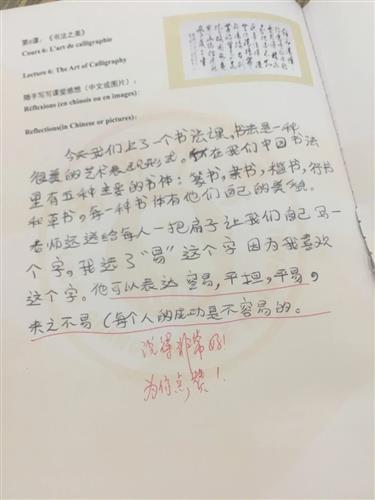 第6课：《书法之美》
Cours 6: L'art de calligraphie
Lecture 6: The Art of Calligraphy
随手写写课堂感想（中文或图片）：
Réflexions (en chinois ou en images) :
Reflections(in Chinese or pictures) :
今天我们上了一个书法课，书法是一种
很美的艺术表现形式。在我们中国书法
里有五种主要的书体：篆书，隶书，楷书，行书
和草书，每一种书体有他们自己的美丽。
老师还送给每人一把扇子让我们自己写一
个字，我选了“易”这个字因为我喜欢
这个字。他可以表达容易，平坦，平易，
来之不易（每个人的成功是不容易的。
说得非常好！
为你点赞！